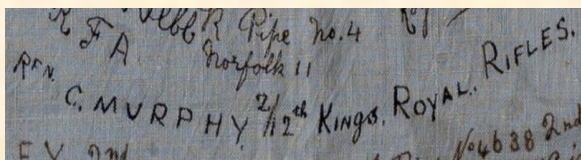 R F A
Pipe No. 4
Norfolk 11
RFN. C. MURPHY 2/12th KINGS. ROYAL. RIFLES.
No 4638 2nd